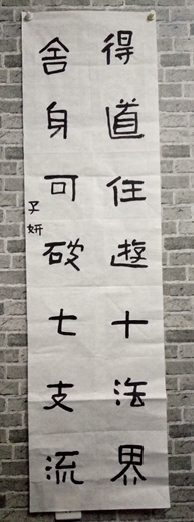 得道任遊十法界
舍身可破七支流
子妍